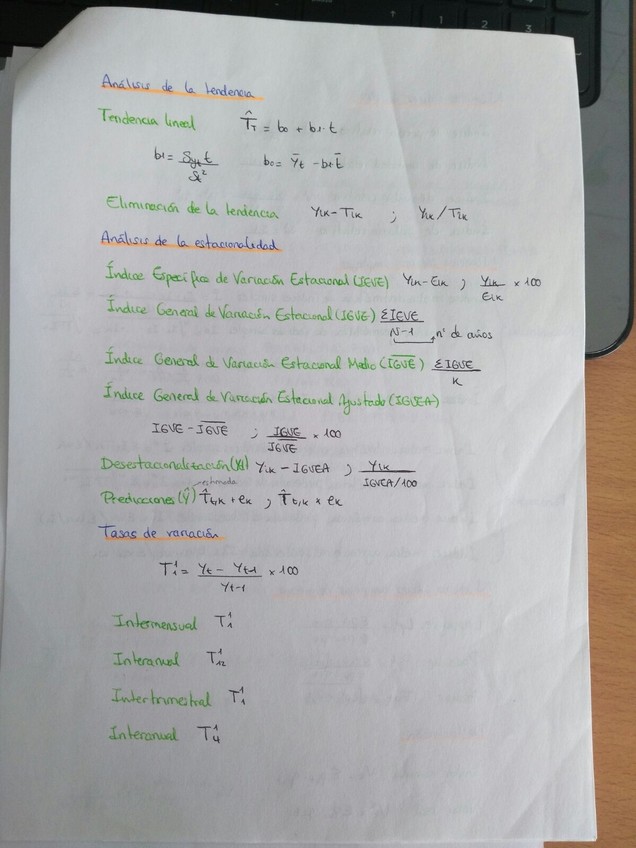 Análisis de la tendencia
Tendencia lineal T̂T = b0 + b1·t
b1 = Syt t / St² b0 = Ȳt - b1·t̄
Eliminación de la tendencia Yik - Tik ; Yik / Tik
Análisis de la estacionalidad
Índice Específico de Variación Estacional (IEVE) Yik - Eik ; Yik / Eik × 100
Índice General de Variación Estacional (IGVE) ΣIEVE / N-1 → nº de años
Índice General de Variación Estacional Medio (I̅G̅V̅E̅) ΣIGVE / K
Índice General de Variación Estacional Ajustado (IGVEA)
IGVE - I̅G̅V̅E̅ ; IGVE / I̅G̅V̅E̅ × 100
Desestacionalización (Yd) Yik - IGVEA ; Yik / IGVEA/100
estimada
Predicciones (Ŷ) T̂t,k + ek ; T̂t,k × ek
Tasas de variación
T¹₁ = Yt - Yt-1 / Yt-1 × 100
Intermensual T¹₁
Interanual T¹₁₂
Intertrimestral T¹₁
Interanual T¹₄
← ↑
1 2 3